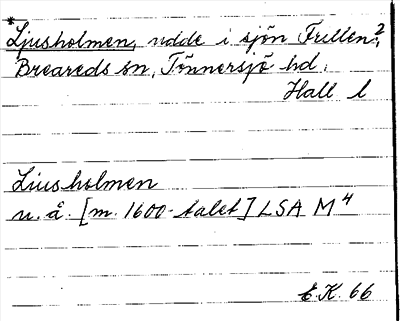 *Ljusholmen, udde i sjön Frillen²,
Breareds sn, Tönnersjö hd,
Hall l
Liusholmen
u. å. [m. 1600-talet] LSA M⁴
E.K. 66